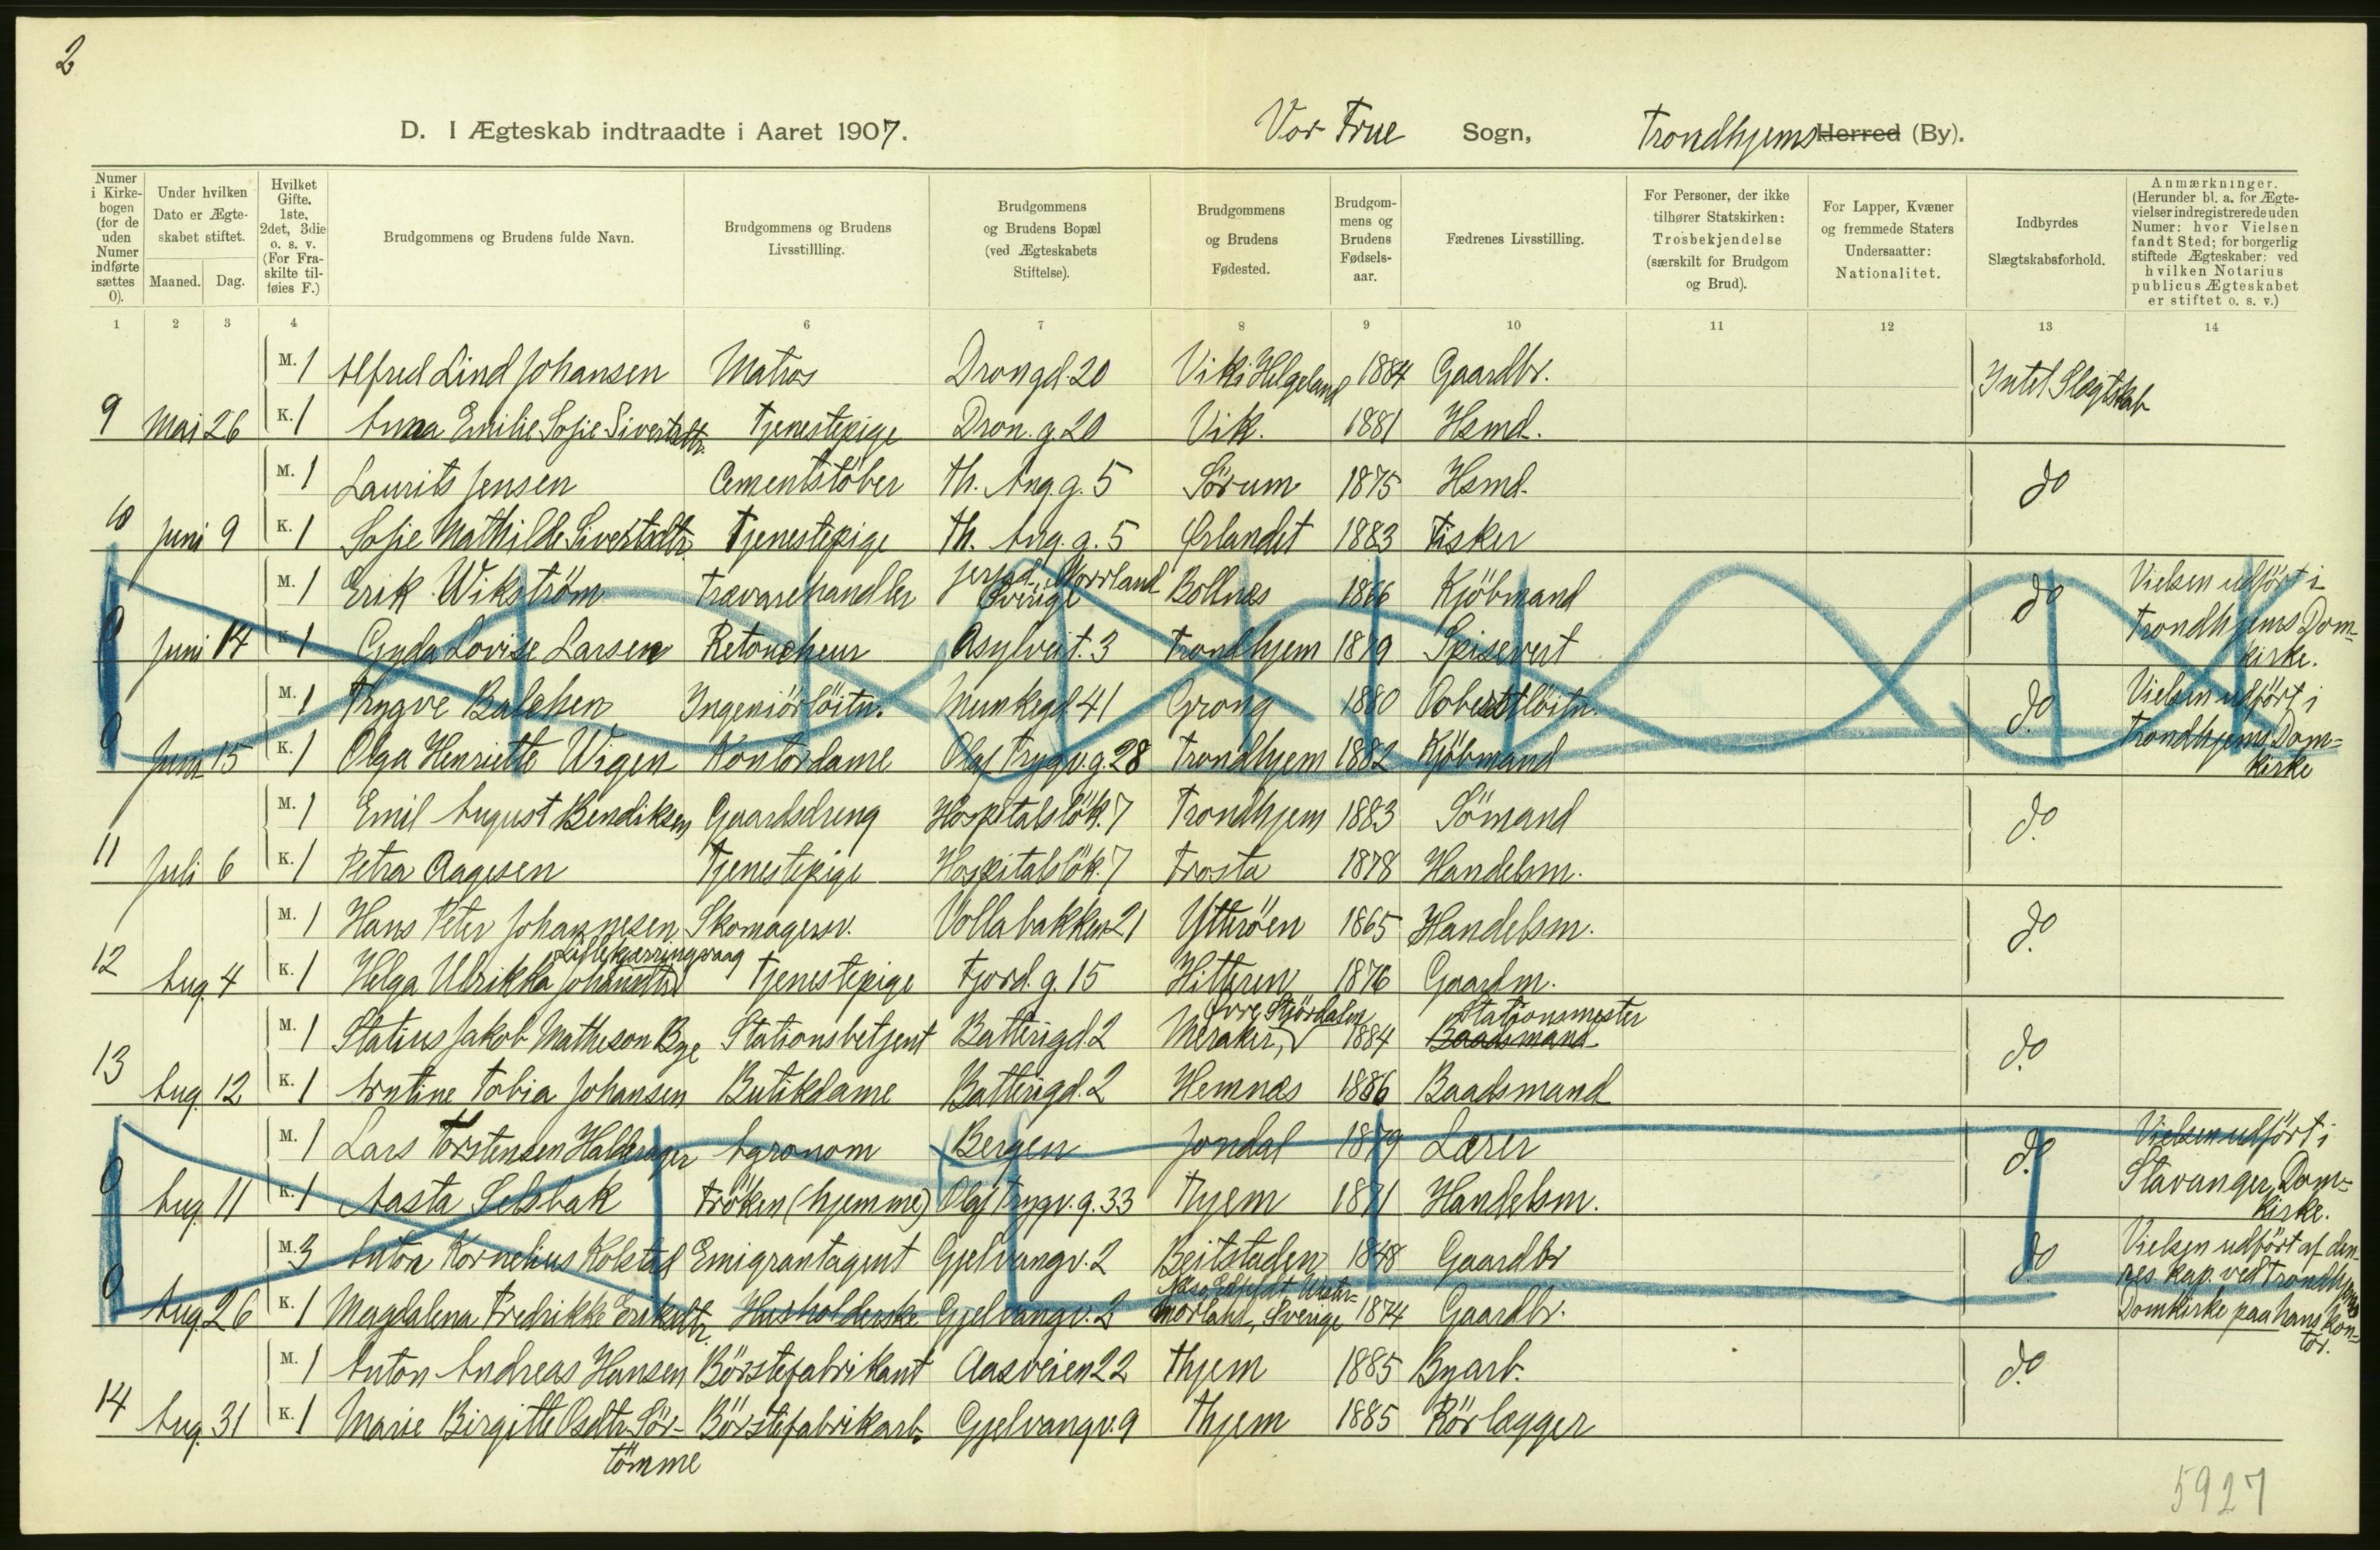 2
D. I Ægteskab indtraadte i Aaret 1907. Vor Frue Sogn, Trondhjems Herred (By).
Numer i Kirkebogen (for de uden Numer indførte sættes 0).
Under hvilken Dato er Ægteskabet stiftet.
Maaned. Dag.
Hvilket Gifte. 1ste, 2det, 3die o. s. v. (For Fraskilte tilføies F.)
Brudgommens og Brudens fulde Navn.
Brudgommens og Brudens Livsstillling.
Brudgommens og Brudens Bopæl (ved Ægteskabets Stiftelse).
Brudgommens og Brudens Fødested.
Brudgommens og Brudens Fødselsaar.
Fædrenes Livsstilling.
For Personer, der ikke tilhører Statskirken: Trosbekjendelse (særskilt for Brudgom og Brud).
For Lapper, Kvæner og fremmede Staters Undersaatter: Nationalitet.
Indbyrdes Slægtskabsforhold.
Anmærkninger. (Herunder bl. a. for Ægtevielser indregistrerede uden Numer: hvor Vielsen fandt Sted; for borgerlig stiftede Ægteskaber: ved hvilken Notarius publicus Ægteskabet er stiftet o. s. v.)
1 2 3 4 6 7 8 9 10 11 12 13 14
M. 1 Alfred Lind Johansen Matros Drongd. 20 Vik i Helgeland 1884 Gaardbr. Intet Slægtskab
9 Mai 26 K. 1 Anna Emilie Sofie Sivertsdtr. Tjenestepige Dron. g. 20 Vik. 1881 Hsmd.
M. 1 Laurits Jensen Cementstöber Th. Ang. g. 5 Sörum 1875 Hsmd. do
10 Juni 9 K. 1 Sofie Mathilde Sivertsdtr. Tjenestepige Th. Ang. g. 5 Ørlandet 1883 Fisker
M. 1 Erik Wikström Trævarehandler Norrland Sverige Bollnæs 1866 Kjöbmand do Vielsen udfört i
0 Juni 14 K. 1 Gyda Lovise Larsen Retoucheur Asylveit. 3 Trondhjem 1879 Spisevert Trondhjems Dom-
kirke.
M. 1 Trygve Balchen Ingeniörlöitn. Munkegd. 41 Grong 1880 Oberstlöitn. do Vielsen udfört i
0 Juni 15 K. 1 Olga Henriette Wigen Kontordame Olaf Trygv. g 28 Trondhjem 1882 Kjöbmand Trondhjems Dom-
kirke
M. 1 Emil August Bendiksen Gaardsdreng Hospitalslök. 7 Trondhjem 1883 Sömand do
11 Juli 6 K. 1 Petra Aagesen Tjenestepige Hospitalslök. 7 Frosta 1878 Handelsm.
M. 1 Hans Peter Johannesen Skomagersv. Vollabakken 21 Ytteröen 1865 Handelsm. do
Lillekjærringvaag
12 Aug. 4 K. 1 Helga Ulrikka Johansdtr. Tjenestepige Fjord. g. 15 Hitteren 1876 Gaardm.
Övre Stjördalen Stationsmester
M. 1 Statius Jakob Matheson Bye Stationsbetjent Batterigd. 2 Meraker, 1884 Baadsmand do
13 Aug. 12 K. 1 Arntine Tobia Johansen Butikdame Batterigd. 2 Hemnæs 1886 Baadsmand
M. 1 Lars Torstensen Haldorager Agronom Bergen Jondal 1879 Lærer do Vielsen udfört i
0 Aug. 11 K. 1 Aasta Selsbak Fröken (hjemme) Olaf Trygv. g. 33 Thjem 1871 Handelsm. Stavanger Dom-
kirke.
M. 3 Anton Kornelius Kolstad Emigrantagent Gjelvangv. 2 Beitstaden 1848 Gaardbr do Vielsen udfört af den-
nes kap. ved Trondhjems
0 Aug. 26 K. 1 Magdalena Fredrikke Eriksdtr. Husholderske Gjelvangv. 2 Wester-
morland, Sverige 1874 Gaardbr. Domkirke paa hans kon-
tor.
M. 1 Anton Andreas Hansen Börstefabrikant Aasveien 22 Thjem 1885 Byarb. do
14 Aug. 31 K. 1 Marie Birgitte Osdtr. Sör- Börstefabrikarb. Gjelvangv. 9 Thjem 1885 Rörlægger
tömme
5927